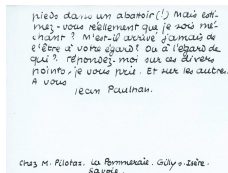 pieds dans un abattoir (!) Mais esti-
mez-vous réellement que je sois mé-
chant ? M'est-il arrivé jamais de
l'être à votre égard ? Ou à l'égard de
qui ? répondez-moi sur ces divers
points, je vous prie. Et sur les autres.
A vous
Jean Paulhan.
chez M. Pilotaz. La Pommeraie. Gilly s. Isère.
Savoie.